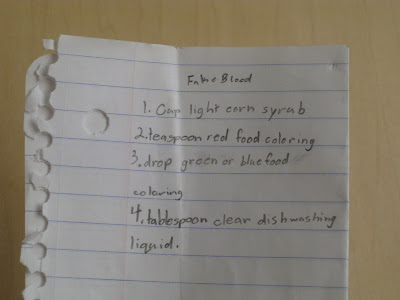 Fake Blood
1. Cup light corn syrub
2. teaspoon red food coloring
3. drop green or blue food
coloring
4. tablespoon clear dishwashing
liquid.